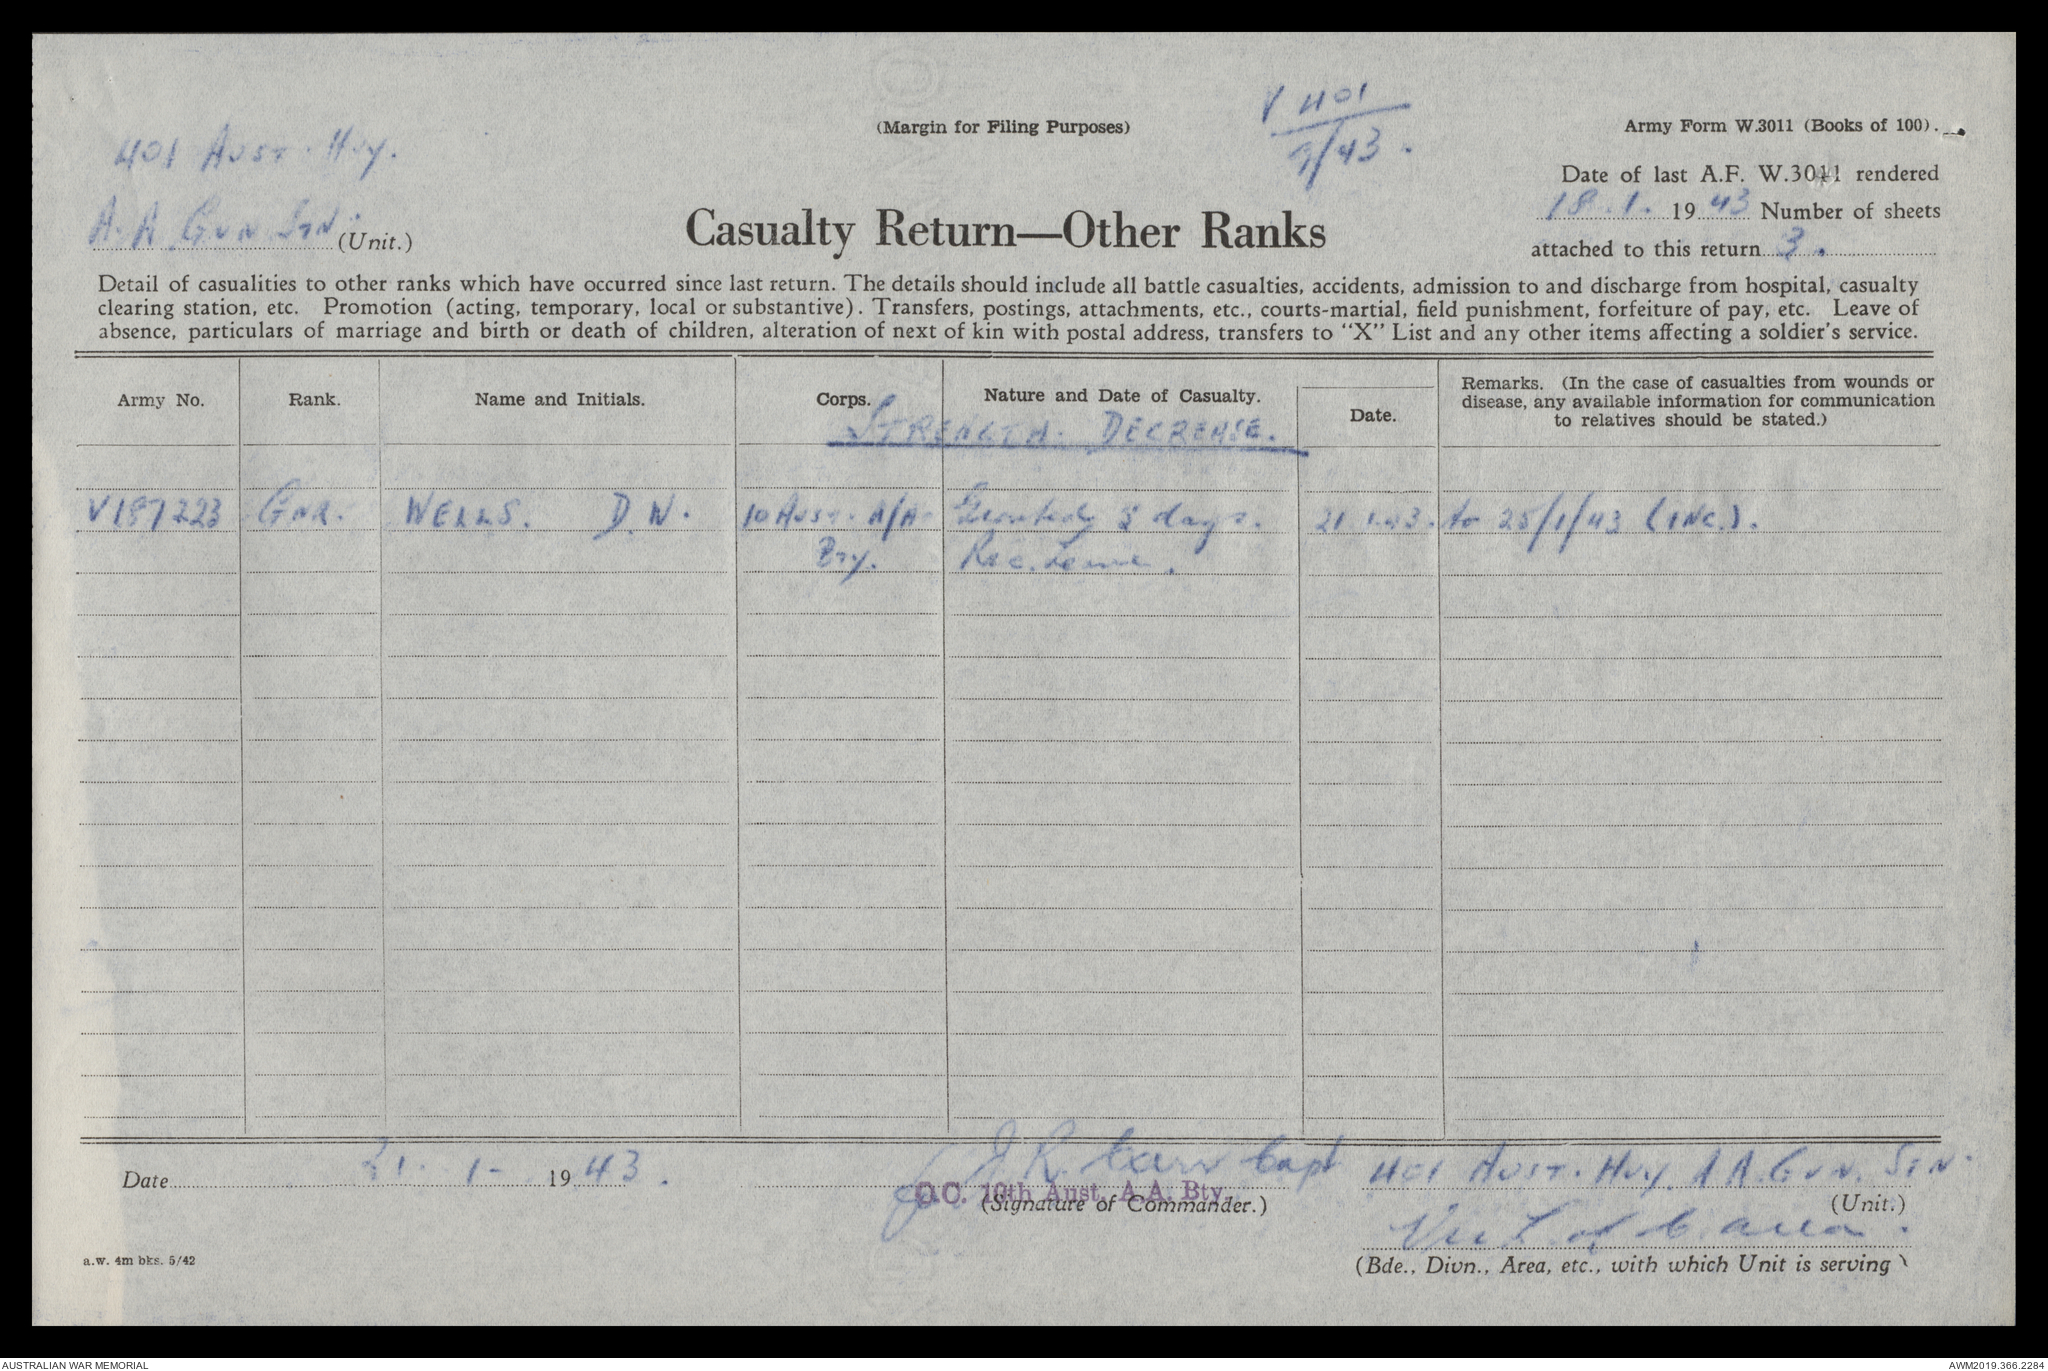 (Margin for Filing Purposes)
V 401
9/43.
Army Form W.3011 (Books of 100).
401 Aust. Hvy.
A.A Gun Stn. (Unit.)
Casualty Return—Other Ranks
Date of last A.F. W.3011 rendered
18.1. 1943 Number of sheets
attached to this return 3.
Detail of casualities to other ranks which have occurred since last return. The details should include all battle casualties, accidents, admission to and discharge from hospital, casualty
clearing station, etc. Promotion (acting, temporary, local or substantive). Transfers, postings, attachments, etc., courts-martial, field punishment, forfeiture of pay, etc. Leave of
absence, particulars of marriage and birth or death of children, alteration of next of kin with postal address, transfers to "X" List and any other items affecting a soldier's service.
Army No. Rank. Name and Initials. Corps. Nature and Date of Casualty. Date. Remarks. (In the case of casualties from wounds or
disease, any available information for communication
to relatives should be stated.)
STRENGTH. DECREASE.
V187223 GNR. WELLS. D.W. 10 Aust. A/A. days. 21.1.43. to 25/1/43 (INC.).
Bty. Rec. Leave.
Date 21. 1- 1943.
J. R. Capt
O.C. 10th Aust. A.A. Bty.
(Signature of Commander.)
401 Aust. Hvy. A A. Gun. Stn.
(Unit.)
Vic L of C. area.
(Bde., Divn., Area, etc., with which Unit is serving)
a.w. 4m bks. 5/42
AUSTRALIAN WAR MEMORIAL
AWM2019.366.2284